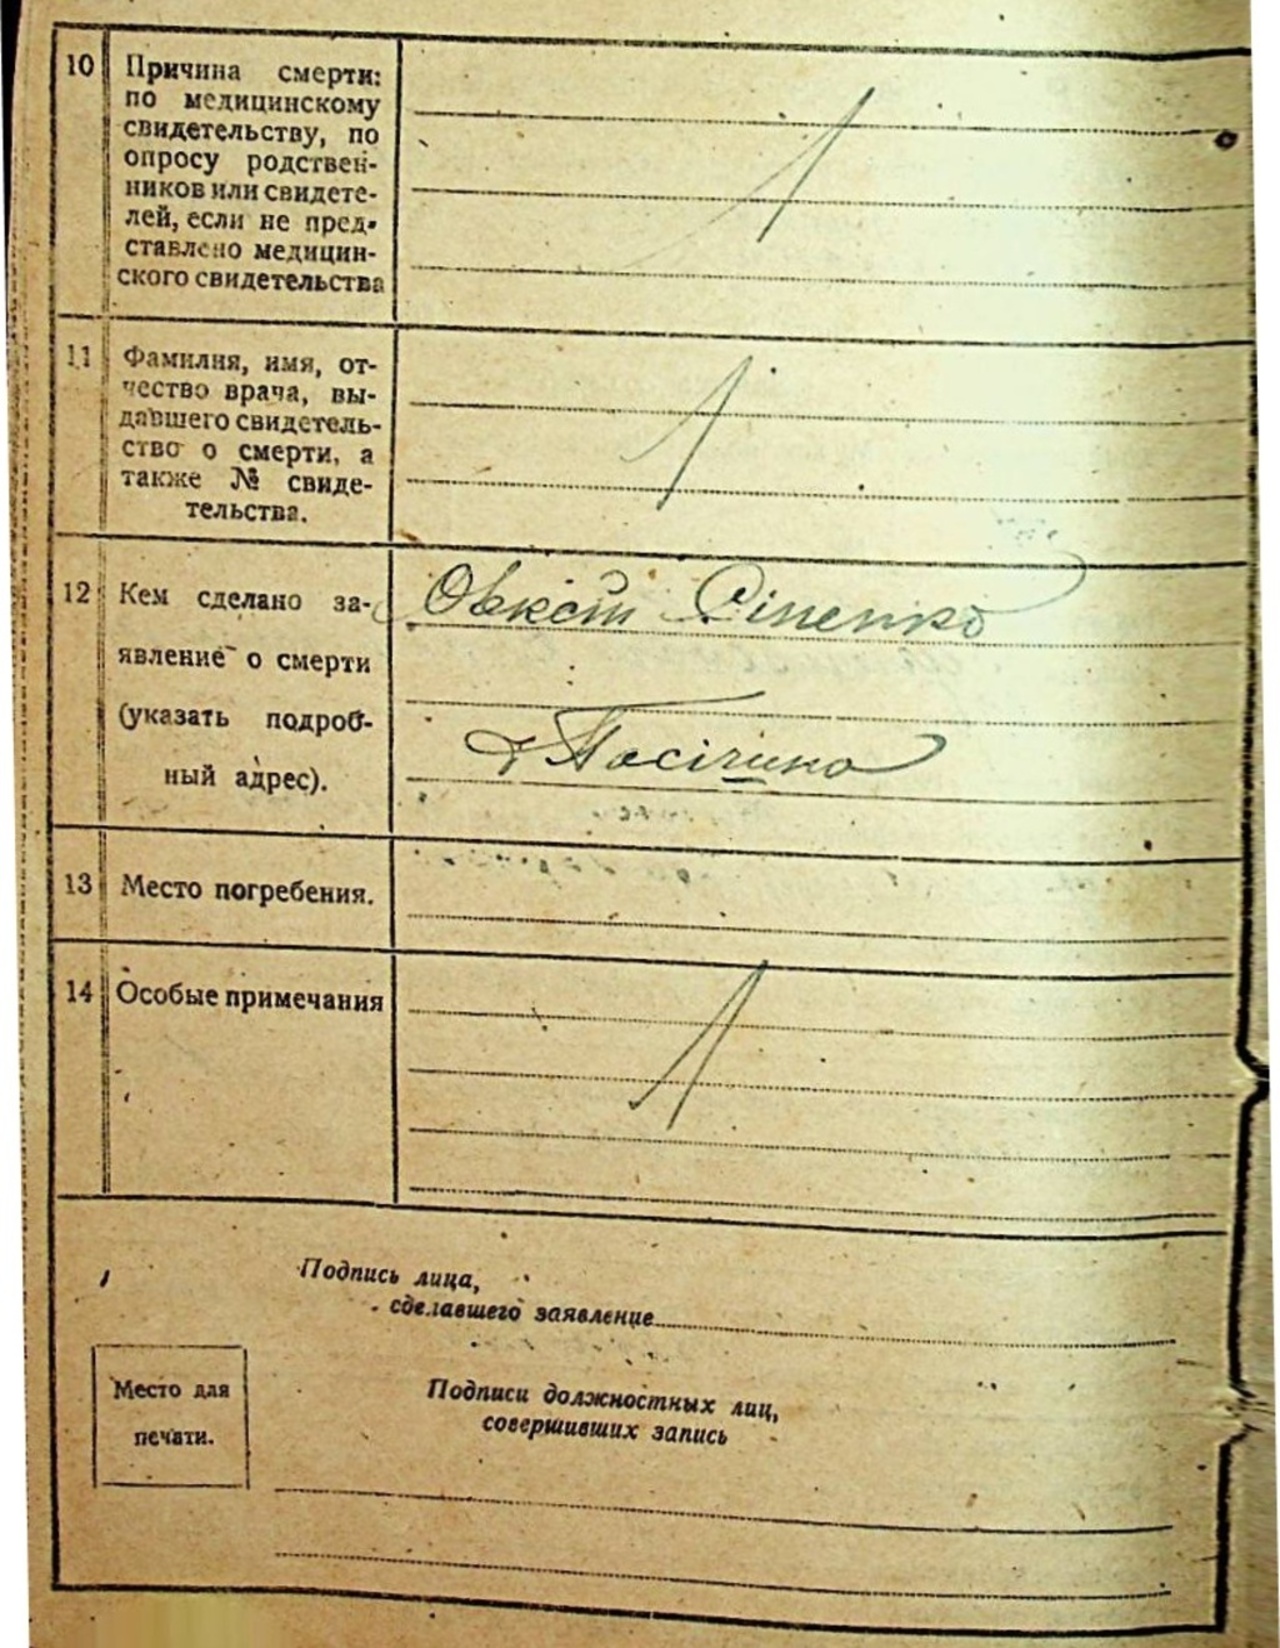 10 Причина смерти:
по медицинскому
свидетельству, по
опросу родствен-
ников или свидете-
лей, если не пред-
ставлено медицин-
ского свидетельства
11 Фамилия, имя, от-
чество врача, вы-
давшего свидетель-
ство о смерти, а
также № свиде-
тельства.
12 Кем сделано за-
явление о смерти
(указать подроб-
ный адрес).
Пасічино
13 Место погребения.
14 Особые примечания
Подпись лица,
сделавшего заявление
Место для
печати.
Подписи должностных лиц,
совершивших запись